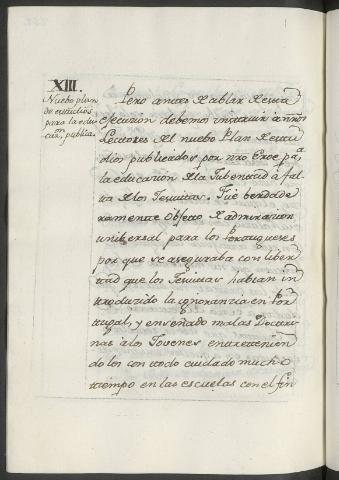 XIII.
Nuebo plan
de estudios
para la edu-
can. publica.
Pero antes de ablar de esta
ejecucion debemos instruir a nrōs
Lectores del nuebo Plan de estu
dios publicados por nrō Eroe pa
la educacion de la Jubentud à fal
ta de los Jesuitas. Fuè berdade
ramente Objeto de admiracion
unibersal para los Portugueses
por que se aseguraba con liber
tad que los Jesuitas habian in
troducido la ignoranzia en Por
tugal, y enseñado malas Doctri-
nas a los Jovenes entretenien
dolos con todo cuidado mucho
tiempo en las escuelas con el fin